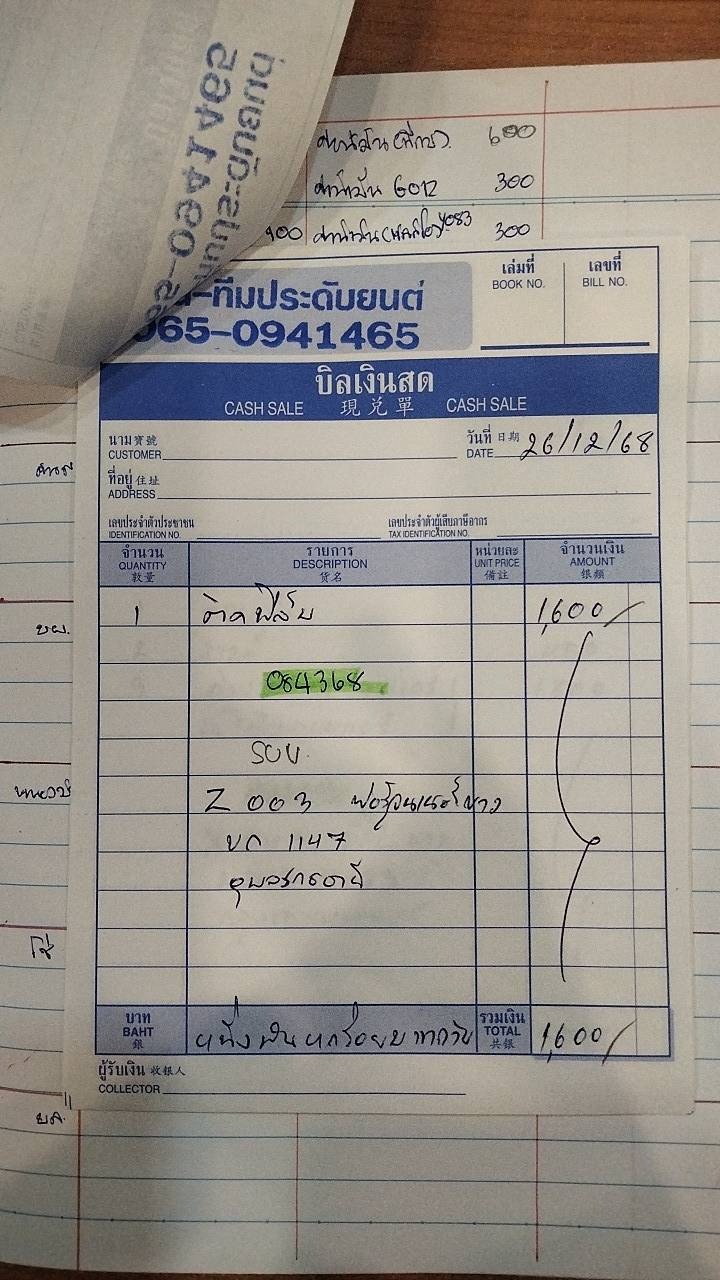 ค่าน้ำมัน 600
ค่าน้ำมัน 6012 300
ค่าน้ำมัน 4083 300
-ทีมประดับยนต์
065-0941465
เล่มที่ เลขที่
BOOK NO. BILL NO.
บิลเงินสด
CASH SALE 現兌單 CASH SALE
นาม 寶號 วันที่ 日期
CUSTOMER DATE 26/12/68
ที่อยู่ 住址
ADDRESS
เลขประจำตัวประชาชน เลขประจำตัวผู้เสียภาษีอากร
IDENTIFICATION NO. TAX IDENTIFICATION NO.
จำนวน รายการ หน่วยละ จำนวนเงิน
QUANTITY DESCRIPTION UNIT PRICE AMOUNT
數量 货名 備註 银額
1 ติดฟิล์ม 1,600/
084368
รถ
Z 003 ฟอร์จูนเนอร์ขาว
ขก 1147
อุบลราชธานี
บาท รวมเงิน
BAHT หนึ่งพันหกร้อยบาทถ้วน TOTAL 1,600/
銀 共銀
ผู้รับเงิน 收銀人
COLLECTOR